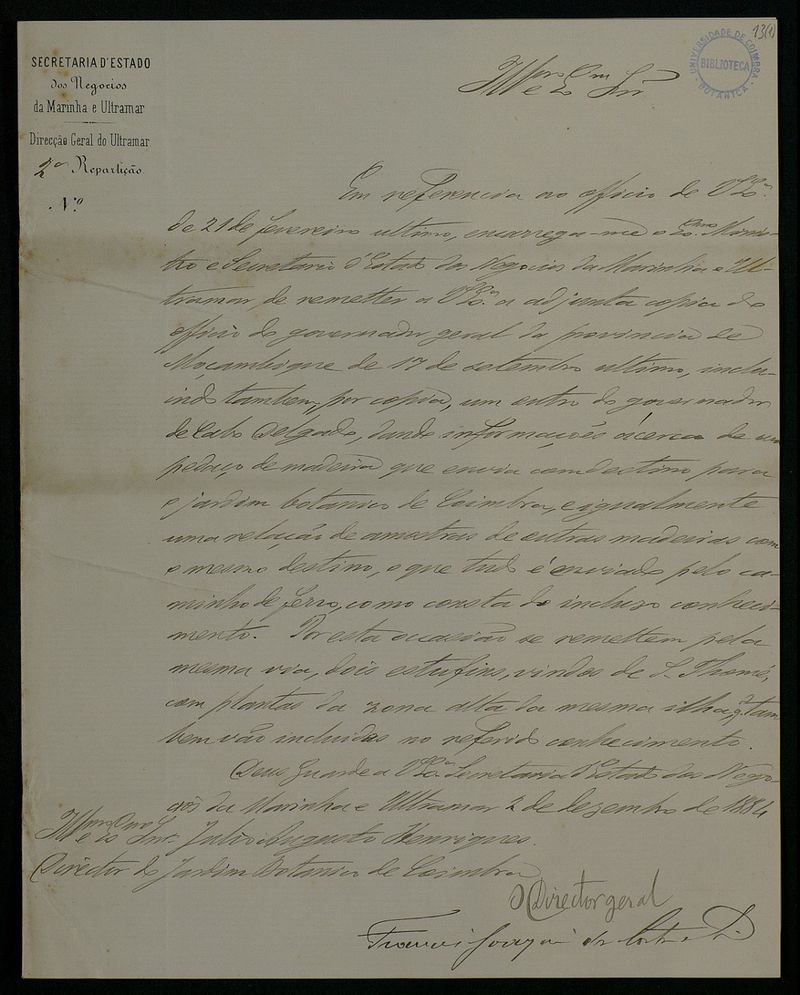 13(1)
UNIVERSIDADE DE COIMBRA
BIBLIOTECA
BOTANICA
SECRETARIA D'ESTADO
dos Negocios
da Marinha e Ultramar
Direcção Geral do Ultramar
2ª Repartição
N.º
Illmo e Exmo Snr
Em referencia ao officio de V. Exª
de 21 de fevereiro ultimo, encarrega-me o Exmo Minis-
tro e Secretario d'Estado dos Negocios da Marinha e Ul-
tramar, de remetter a V. Exª a adjunta copia do
officio do governador geral da provincia de
Moçambique de 17 de setembro ultimo, inclu-
indo tambem, por copia, um outro do governador
de Cabo Delgado, dando informações ácerca de um
pedaço de madeira que envia com destino para
o jardim botanico de Coimbra, e igualmente
uma relação de amostras de outras madeiras com
o mesmo destino, o que tudo é enviado pelo ca-
minho de ferro, como consta do incluso conheci-
mento. Por esta occasião se remettem pela
mesma via, dois estufins, vindos de S. Thomé,
com plantas da zona alta da mesma ilha, q. tam
bem vão incluidos no referido conhecimento.
Deus Guarde a V. Exª Secretaria d'Estado dos Nego-
cios da Marinha e Ultramar 2 de dezembro de 1884
Illmo e Exmo Snr. Julio Augusto Henriques.
Director do Jardim Botanico de Coimbra
O Director geral
Francisco Joaquim da Costa e